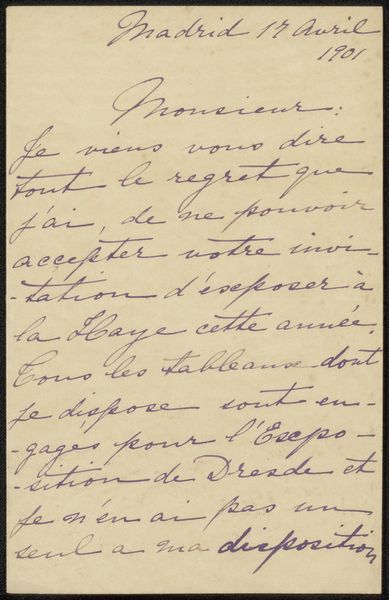 Madrid 17 Avril
1901
Monsieur:
Je viens vous dire
tout le regret que
j'ai, de ne pouvoir
accepter votre invi-
-tation d'exposer à
la Haye cette année.
Tous les tableaux dont
je dispose sont en-
-gagés pour l'Expo-
-sition de Dresde et
je n'en ai pas un
seul a ma disposition